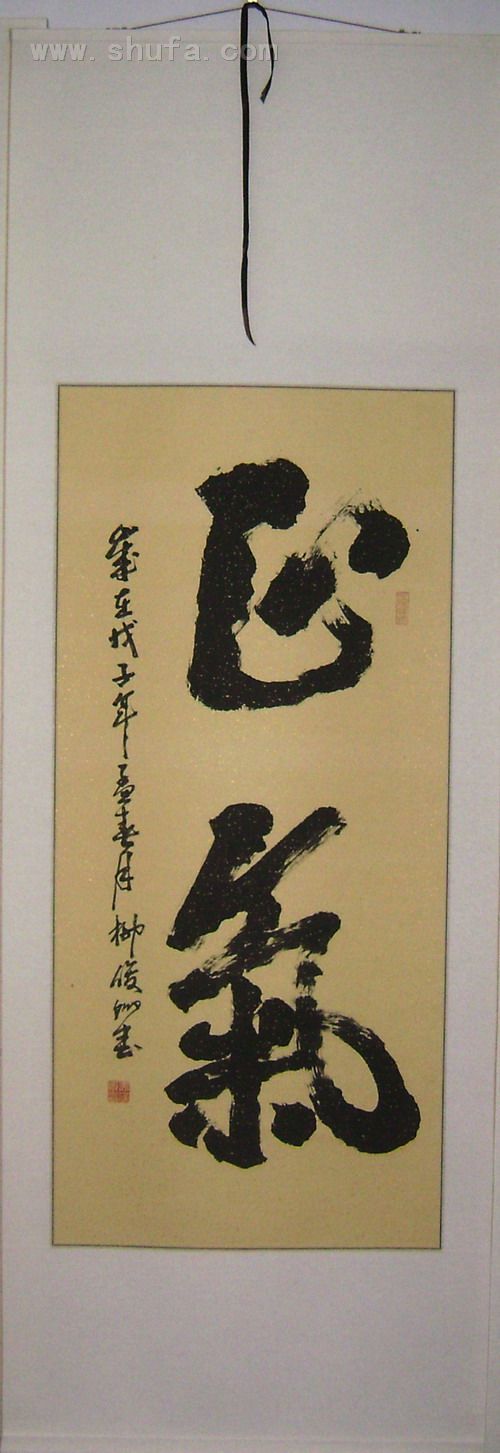 www.shufa.com
正氣
歲在戊子年孟春月柳俊州書